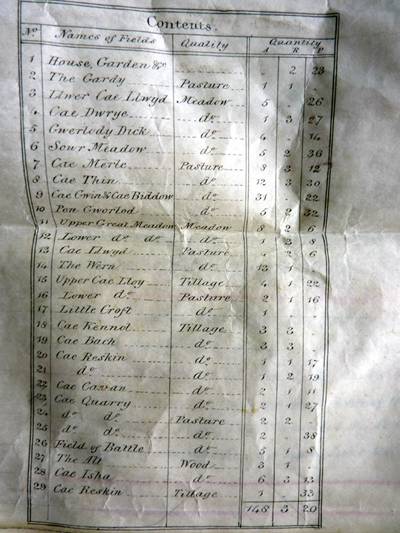 Contents.
No. Names of Fields Quality Quantity
A R P
1 House, Garden &c. . 2 23
2 The Gardy Pasture 1 1 .
3 Llwer Cae Llwyd Meadow 5 . 26
4 Cae Dwrye do. 1 3 27
5 Gwerlody Dick do. 4 . 14
6 Sour Meadow do. 5 2 36
7 Cae Merle Pasture 8 3 12
8 Cae Thin do. 12 3 30
9 Cae Gwin & Cae Biddow do. 31 . 22
10 Pen Gworlod do. 5 2 32
11 Upper Great Meadow Meadow 8 2 6
12 Lower do. do. do. 1 3 8
13 Cae Llwyd Pasture 2 6
14 The Wern do. 13 1 .
15 Upper Cae Lloy Tillage 4 1 22
16 Lower do. Pasture 2 1 16
17 Little Croft do. 1 .
18 Cae Kennol Tillage 3 3 .
19 Cae Bach do. 3 3 .
20 Cae Reskin do. 1 1 17
21 do. do. 1 2 19
22 Cae Cavan do. 2 1 11
23 Cae Quarry do. 2 1 27
24 do. do. Pasture 2 2 .
25 do. do. do. 2 . 38
26 Field of Battle do. 5 1 8
27 The Alt Wood 3 1 .
28 Cae Isha do. 6 3 13
29 Cae Reskin Tillage 1 . 33
148 3 20